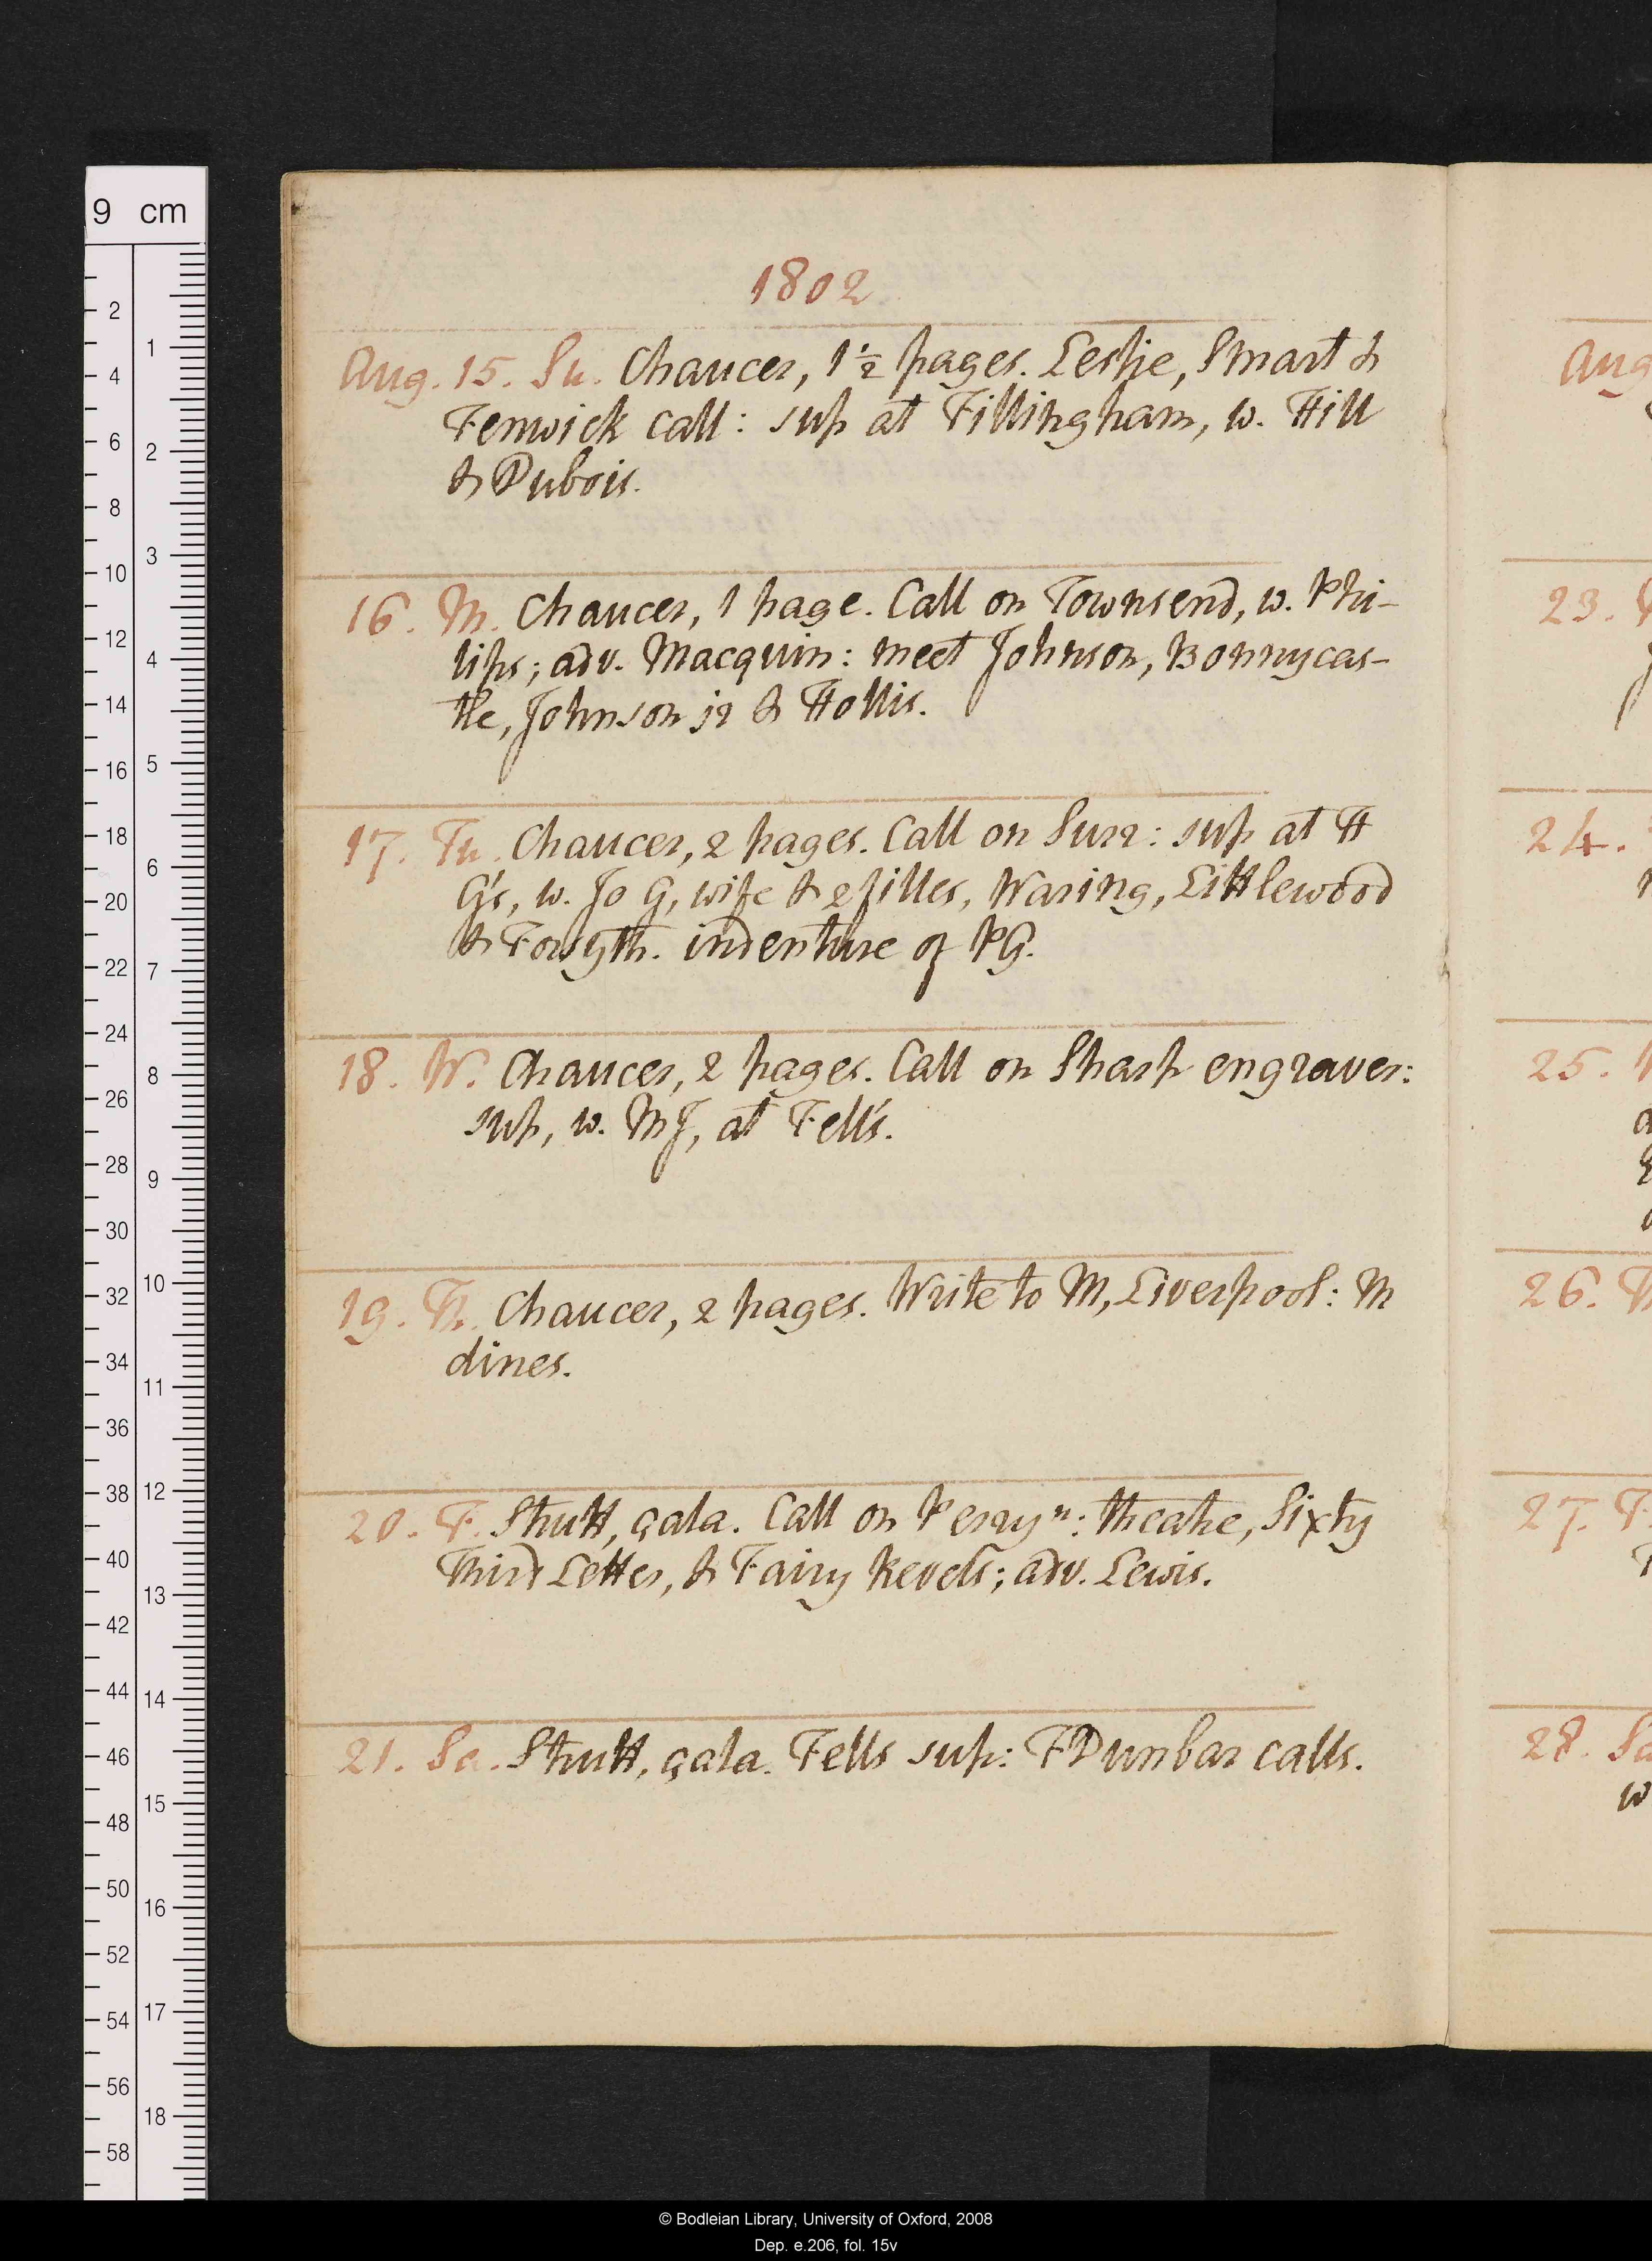 1802
Aug. 15. Su. Chaucer, 1½ pages. Leslie, Smart &
Fenwick call: sup at Fillingham, w. Hill
& Dubois.
16. M. Chaucer, 1 page. Call on Townsend, w. Phi-
lips; adv. Macquin: meet Johnson, Bonnycas-
tle, Johnson jr & Hollis.
17. Tu. Chaucer, 2 pages. Call on Surr: sup at H
G's, w. Jo G, wife & 2 filles, Waring, Littlewood
& Forsyth. indenture of PG.
18. W. Chaucer, 2 pages. Call on Sharp engraver:
sup, w. MJ, at Fell's.
19. Th. Chaucer, 2 pages. Write to M, Liverpool: M
dines.
20. F. Strutt, çala. Call on Perry n: theatre, Sixty
Third Letter, & Fairy Revels; adv. Lewis.
21. Sa. Strutt, çala. Fells sup: F Dunbar calls.
Aug
23.
24.
25.
26.
27. F
28. Sa
w
9 cm
2
4
6
8
10
12
14
16
18
20
22
24
26
28
30
32
34
36
38
40
42
44
46
48
50
52
54
56
58
1
2
3
4
5
6
7
8
9
10
11
12
13
14
15
16
17
18
© Bodleian Library, University of Oxford, 2008
Dep. e.206, fol. 15v